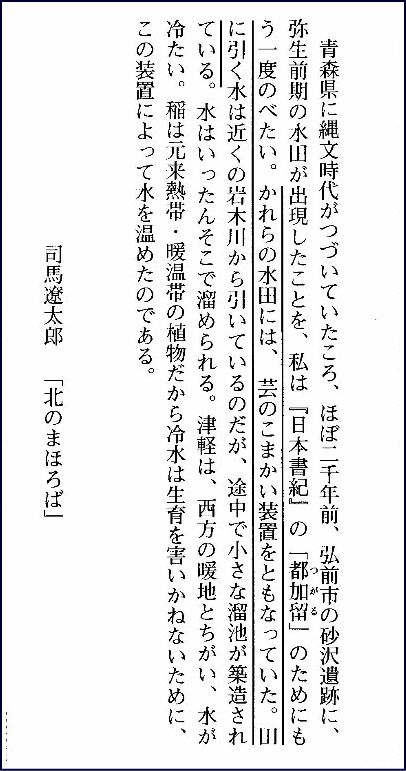 青森県に縄文時代がつづいていたころ、ほぼ二千年前、弘前市の砂沢遺跡に、
弥生前期の水田が出現したことを、私は『日本書紀』の「都加留」のためにも
つがる
う一度のべたい。かれらの水田には、芸のこまかい装置をともなっていた。田
に引く水は近くの岩木川から引いているのだが、途中で小さな溜池が築造され
ている。水はいったんそこで溜められる。津軽は、西方の暖地とちがい、水が
冷たい。稲は元来熱帯・暖温帯の植物だから冷水は生育を害いかねないために、
この装置によって水を温めたのである。
司馬遼太郎 「北のまほろば」